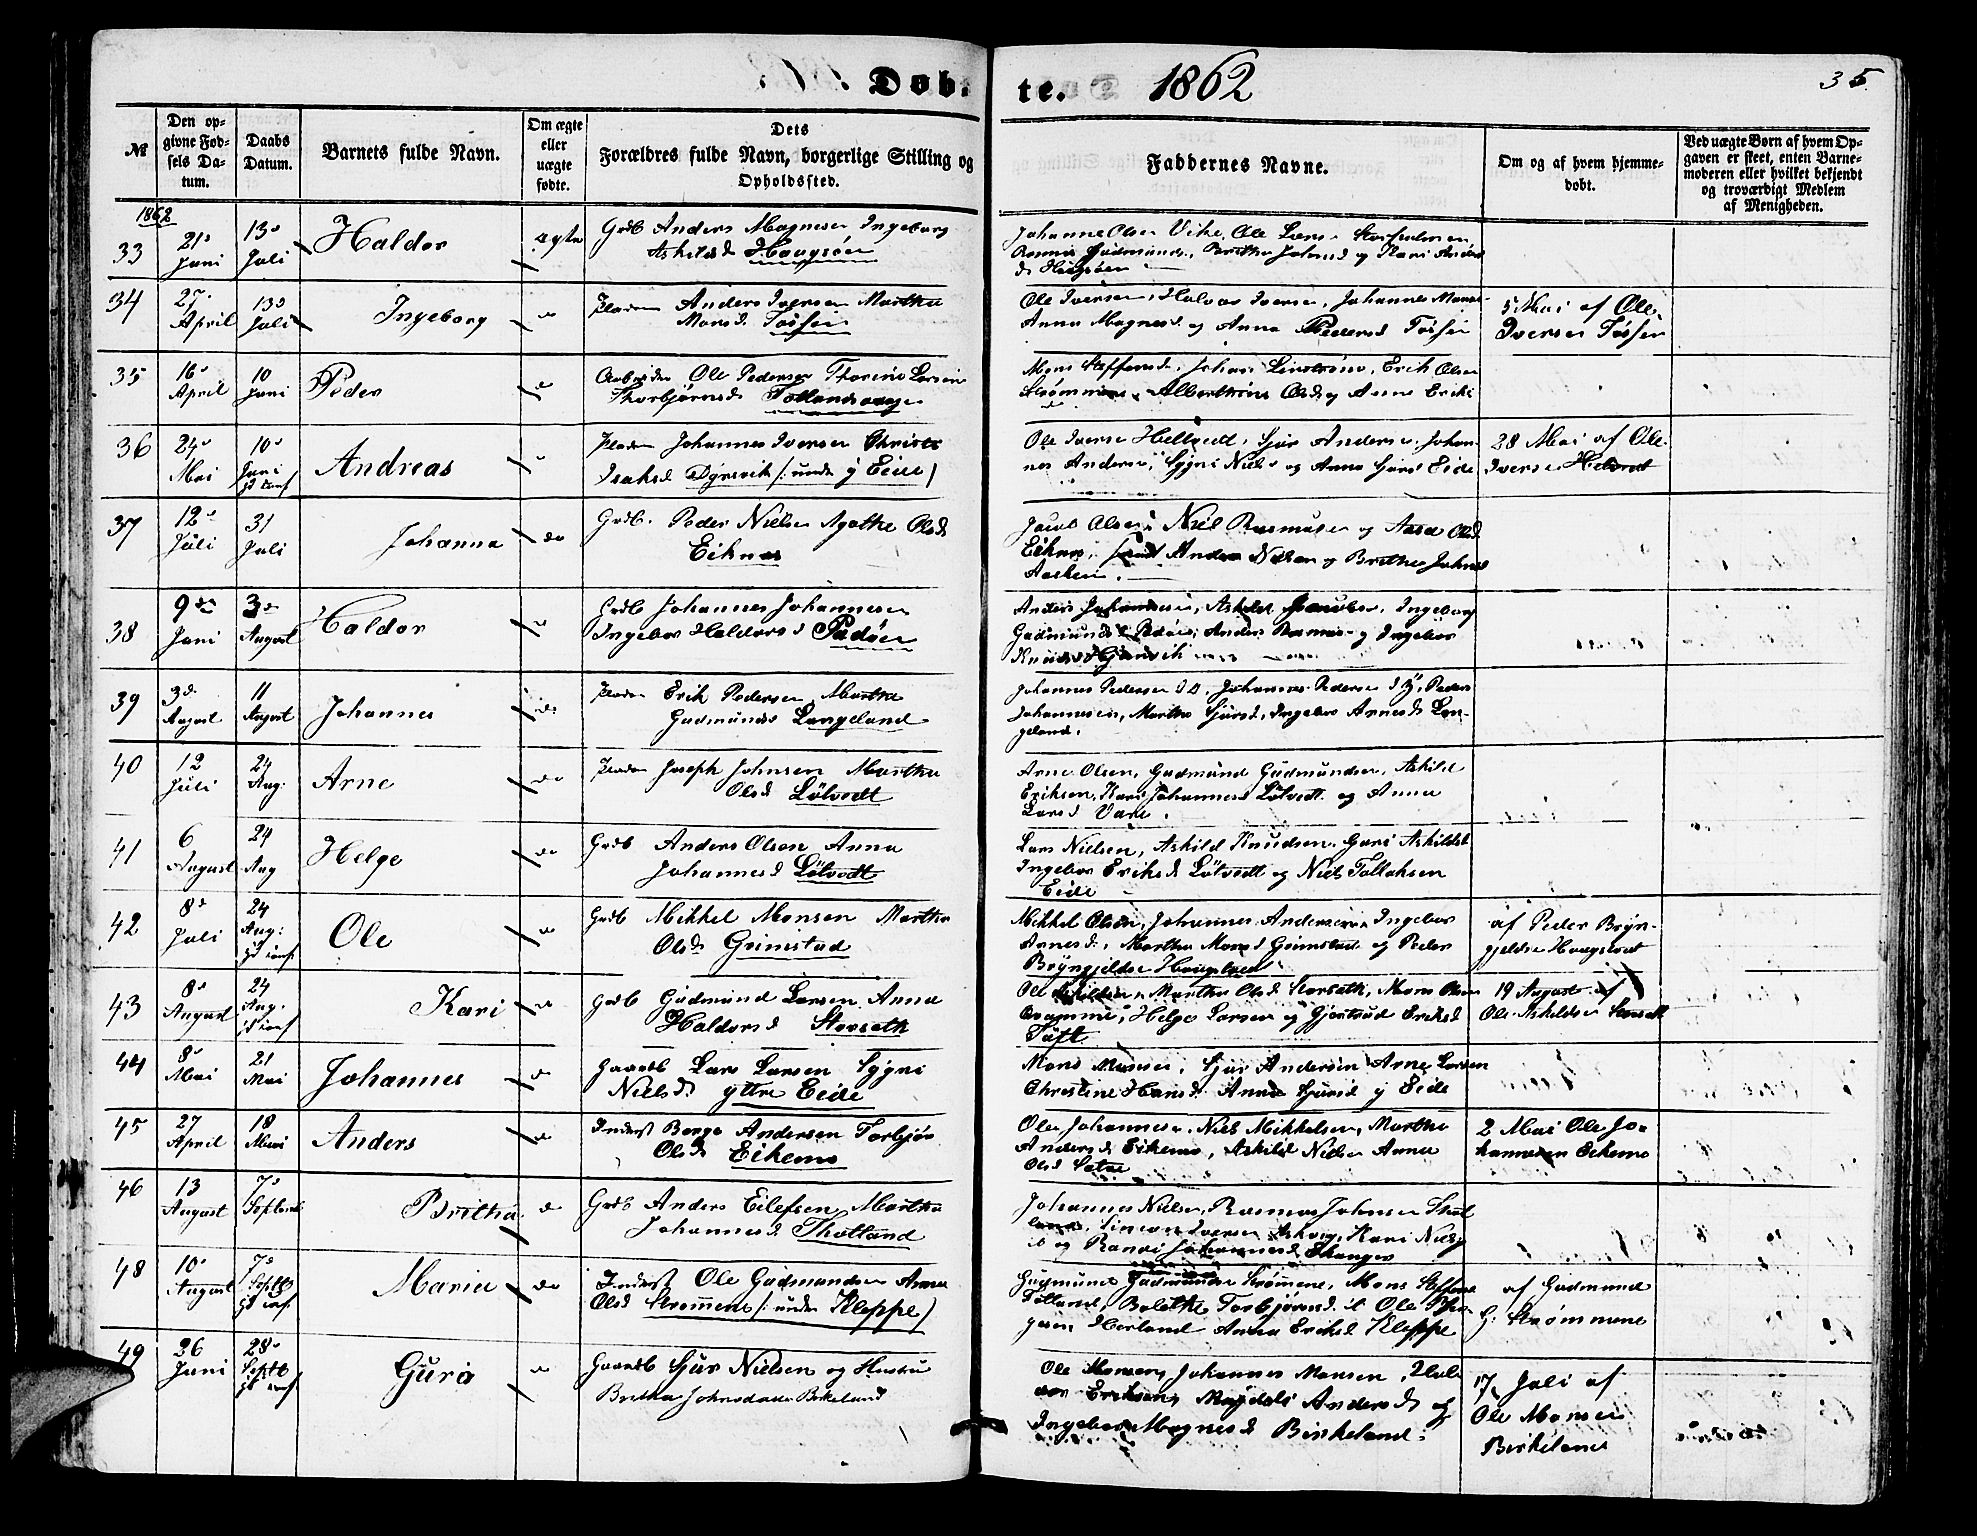 Døbte. 1862
35
№
Den opgivne Fødsels Datum.
Daabs Datum.
Barnets fulde Navn.
Om ægte eller uægte fødte.
Dets Forældres fulde Navn, borgerlige Stilling og Opholdssted.
Faddernes Navne.
Om og af hvem hjemmedøbt.
Ved uægte Børn af hvem Opgaven er skeet, enten Barnemoderen eller hvilket bekjendt og troværdigt Medlem af Menigheden.
1862
33 21 Juni 13 Juli Haldor ægte Grdb Anders Magnesen Ingeborg
Askilds Haugsøen
Johanne Olsen Vike, Ole Lars
Gudmunds, Britha Johnsd og Kari Anders
34 27 April 13 Juli Ingeborg Anders Iversen Martha
Monsd Tøsse
Ole Iversen, Halvor Iversen, Johannes Mons
Anna Magnesd og Anna Pedersd Tøssen
5 Mai af Ole
Iversen Tøssen
35 16 April 10 Juni Peder Arbeider Ole Pedersen
Thorbjørnsd
Mons Steffens, Johan Erik Olsen
Olsd og Anne Eriks
36 24 Mai 10 Juni Andreas Johannes Iversen
Isaksd Dyrsvik /: under y Eide /
Ole Iversen Helvedt, Sjur Andersen, Johannes
Andersen, Sygni Niels og Anna Sjursd Eide
28 Mai af Ole
Iversen Helvedt
37 12 Juli 31 Juli Johanna do Grdb. Peder Nielsen Agathe Olsd
Eiknes
Jacob Olsen, Niel Rasmusen og Aasa Olsd
Eiknes, Anders Nielsen og Britha Johnsd
38 9 Juni 3 August Haldor Grdb Johannes Johannesen
Ingebor Haldorsd Padøen
Anders Johannesen, Askild Jacobsen, Ingeborg
Gudmundsd Padøen, Anders Rasmus og Ingebor
Knudsd
39 3 August 11 August Johannes do Erik Pedersen Martha
Gudmunds Langeland
Johannes Pedersen, Johannes Pedersen, Peder
Johannesen, Martha Sjursd, Ingebor Arnesd Langeland.
40 12 Juli 24 Aug: Arne do Joseph Johnsen Martha
Olsd Løtvedt
Arne Olsen, Gudmund Gudmundsen, Askild
Eriksen, Kari Johannesd Løtvedt og Anna
Larsd
41 6 August 24 Aug Helge do Grdb Anders Olsen Anna
Johannesd Løtvedt
Lars Nielsen, Askild Knudsen, Guri Askildsd
Ingebor Eriksd Løtvedt og Niels Tollaksen
Eide
42 8 Juli 24 Aug: Ole Grdb Mikkel Monsen Martha
Olsd Grimstad
Mikkel Olsen, Johannes Andersen Ingebor
Arnesd, Martha Monsd Grimstad og Peder
Bryngjeldsen
af Peder Bryngjeldsen
43 8 August 24 Aug: Kari Grdb Gudmund Larsen Anna
Haldorsd Storseth
Ole Askildsen, Martha Olsd Storseth, Mons Olsen
Helge Larsen og Gjertrud Eriksd
Tuft
19 August af
Ole Askildsen Storseth
44 8 Mai 21 Mai Johannes Gaardb Lars Larsen Sygni
Nielsd ytre Eide
Mons Monsen, Sjur Andersen Arne Larsen
Christine Hansd Anna Sjursd y Eide
45 27 April 18 Mai Anders Inderst Berge Andersen Torbjør
Olsd Eikemo
Ole Johannesen, Niels Mikkelsen, Martha
Andersd Eikemo, Askild Nielsen Anna
Olsd Sætre
2 Mai Ole Johannesen Eikemo
46 13 August 7 Septemb Britha do Grdb Anders Eilefsen Martha
Johannesd Thotland
Johannes Nielsen, Rasmus Johnsen
Simon Iversen Askvig, Kari Niels
og Ranvei Johannesd Skanger
48 10 August 7 Septb Maria do Inderst Ole Gudmundsen Anna
Olsd Strømmene /: under Kleppe /
Gudmund Gudmundsen Strømene, Mons Steffens
Totland, Bolethe Torbjørnsd Ole
Herland Anna Eriksd Kleppe
af Gudmund
G: Strømmene
49 26 Juni 28 Septb Guri Gaardb Sjur Nielsen og Hustru
Britha Johnsdatter Birkeland
Ole Monsen, Johannes Monsen, Haldor
Eriksen, Magdeli Andersd og
Ingebor Magnesd Birkeland.
17 Juli af
Ole Monsen
Birkeland